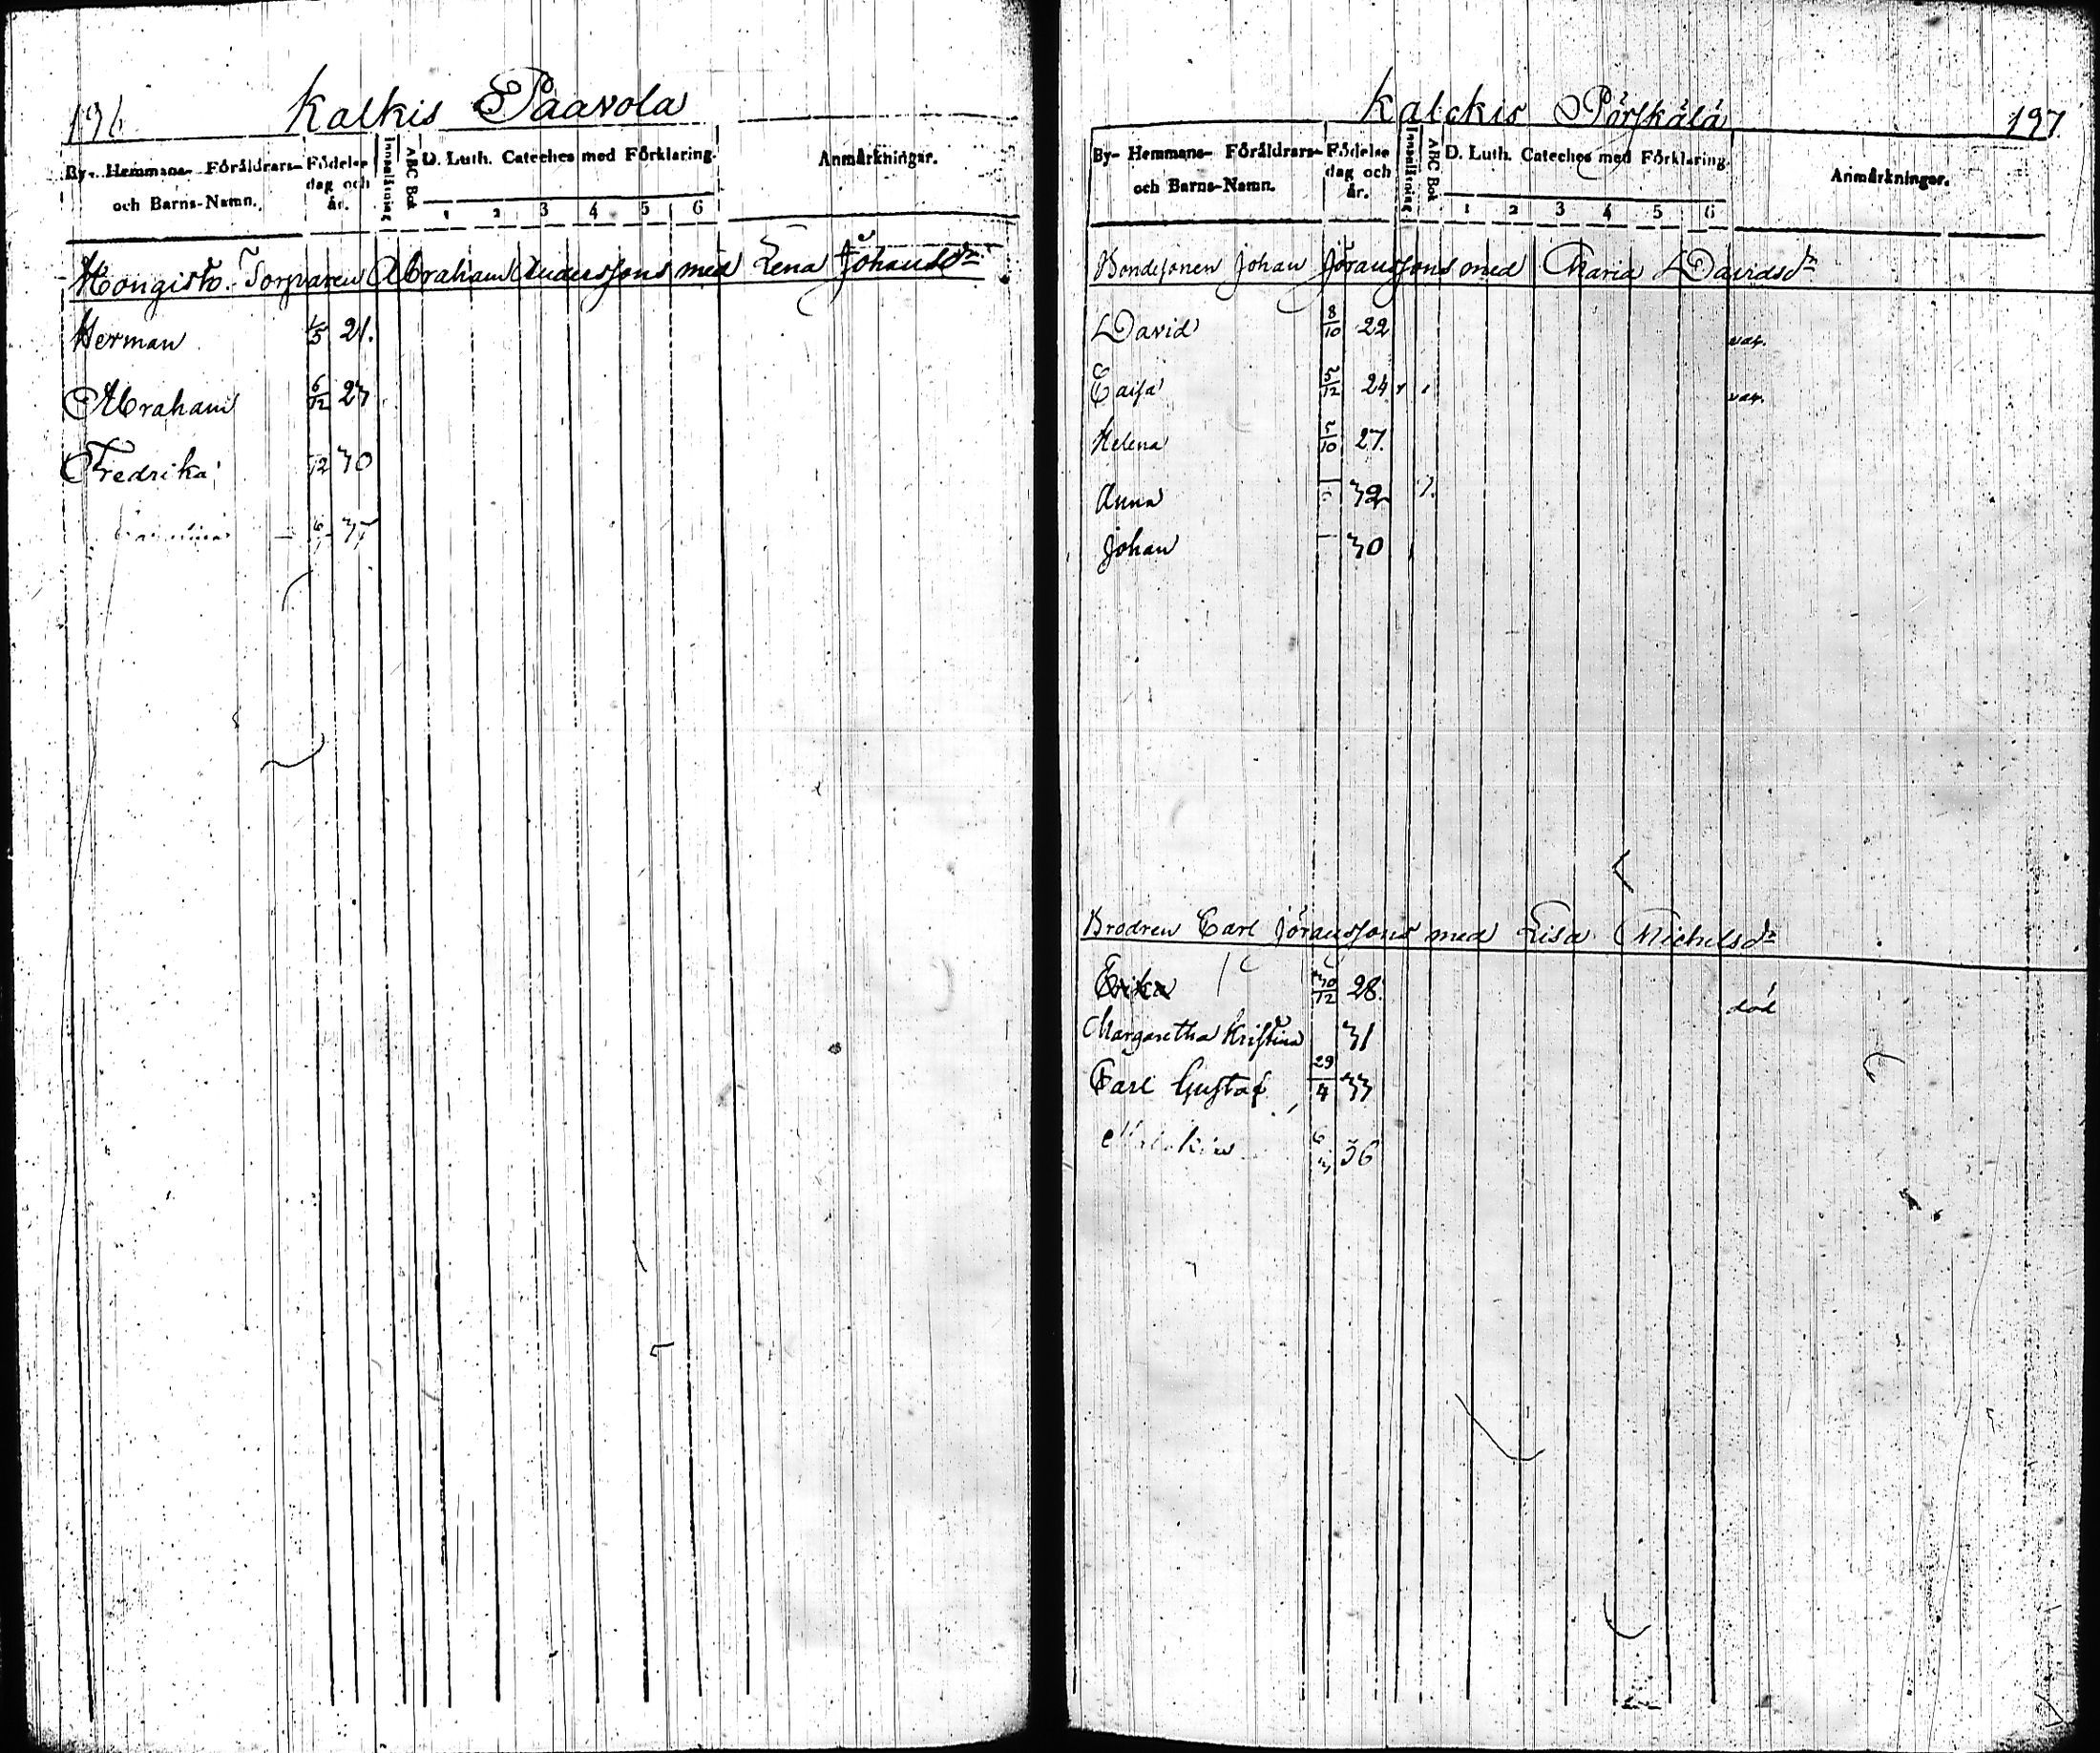 196
Kalkis Paavola
By- Hemmans- Föräldrars- och Barns-Namn.
Födelse dag och år.
Innanläsning
ABC Bok
D. Luth. Cateches med Förklaring.
1 2 3 4 5 6
Anmärkningar.
Hongisto. Torparen Abraham Anderssons med Lena Johansdr
Herman 1/5 21.
Abraham 6/12 27
Fredrika 12 30
197
Kalckis Pörskälä
By- Hemmans- Föräldrars- och Barns-Namn.
Födelse dag och år.
Innanläsning
ABC Bok
D. Luth. Cateches med Förklaring.
1 2 3 4 5 6
Anmärkningar.
Bondesonen Johan Jöranssons med Maria Davidsdr
David 8/10 22 vac.
Caisa 5/12 24 vac.
Helena 5/10 27.
Anna 32
Johan 30
Brodren Carl Jöranssons med Lisa Michelsdr
Erika 30/12 28. död
Margaretha Kristina 31
Carl Gustaf 29/4 33
36